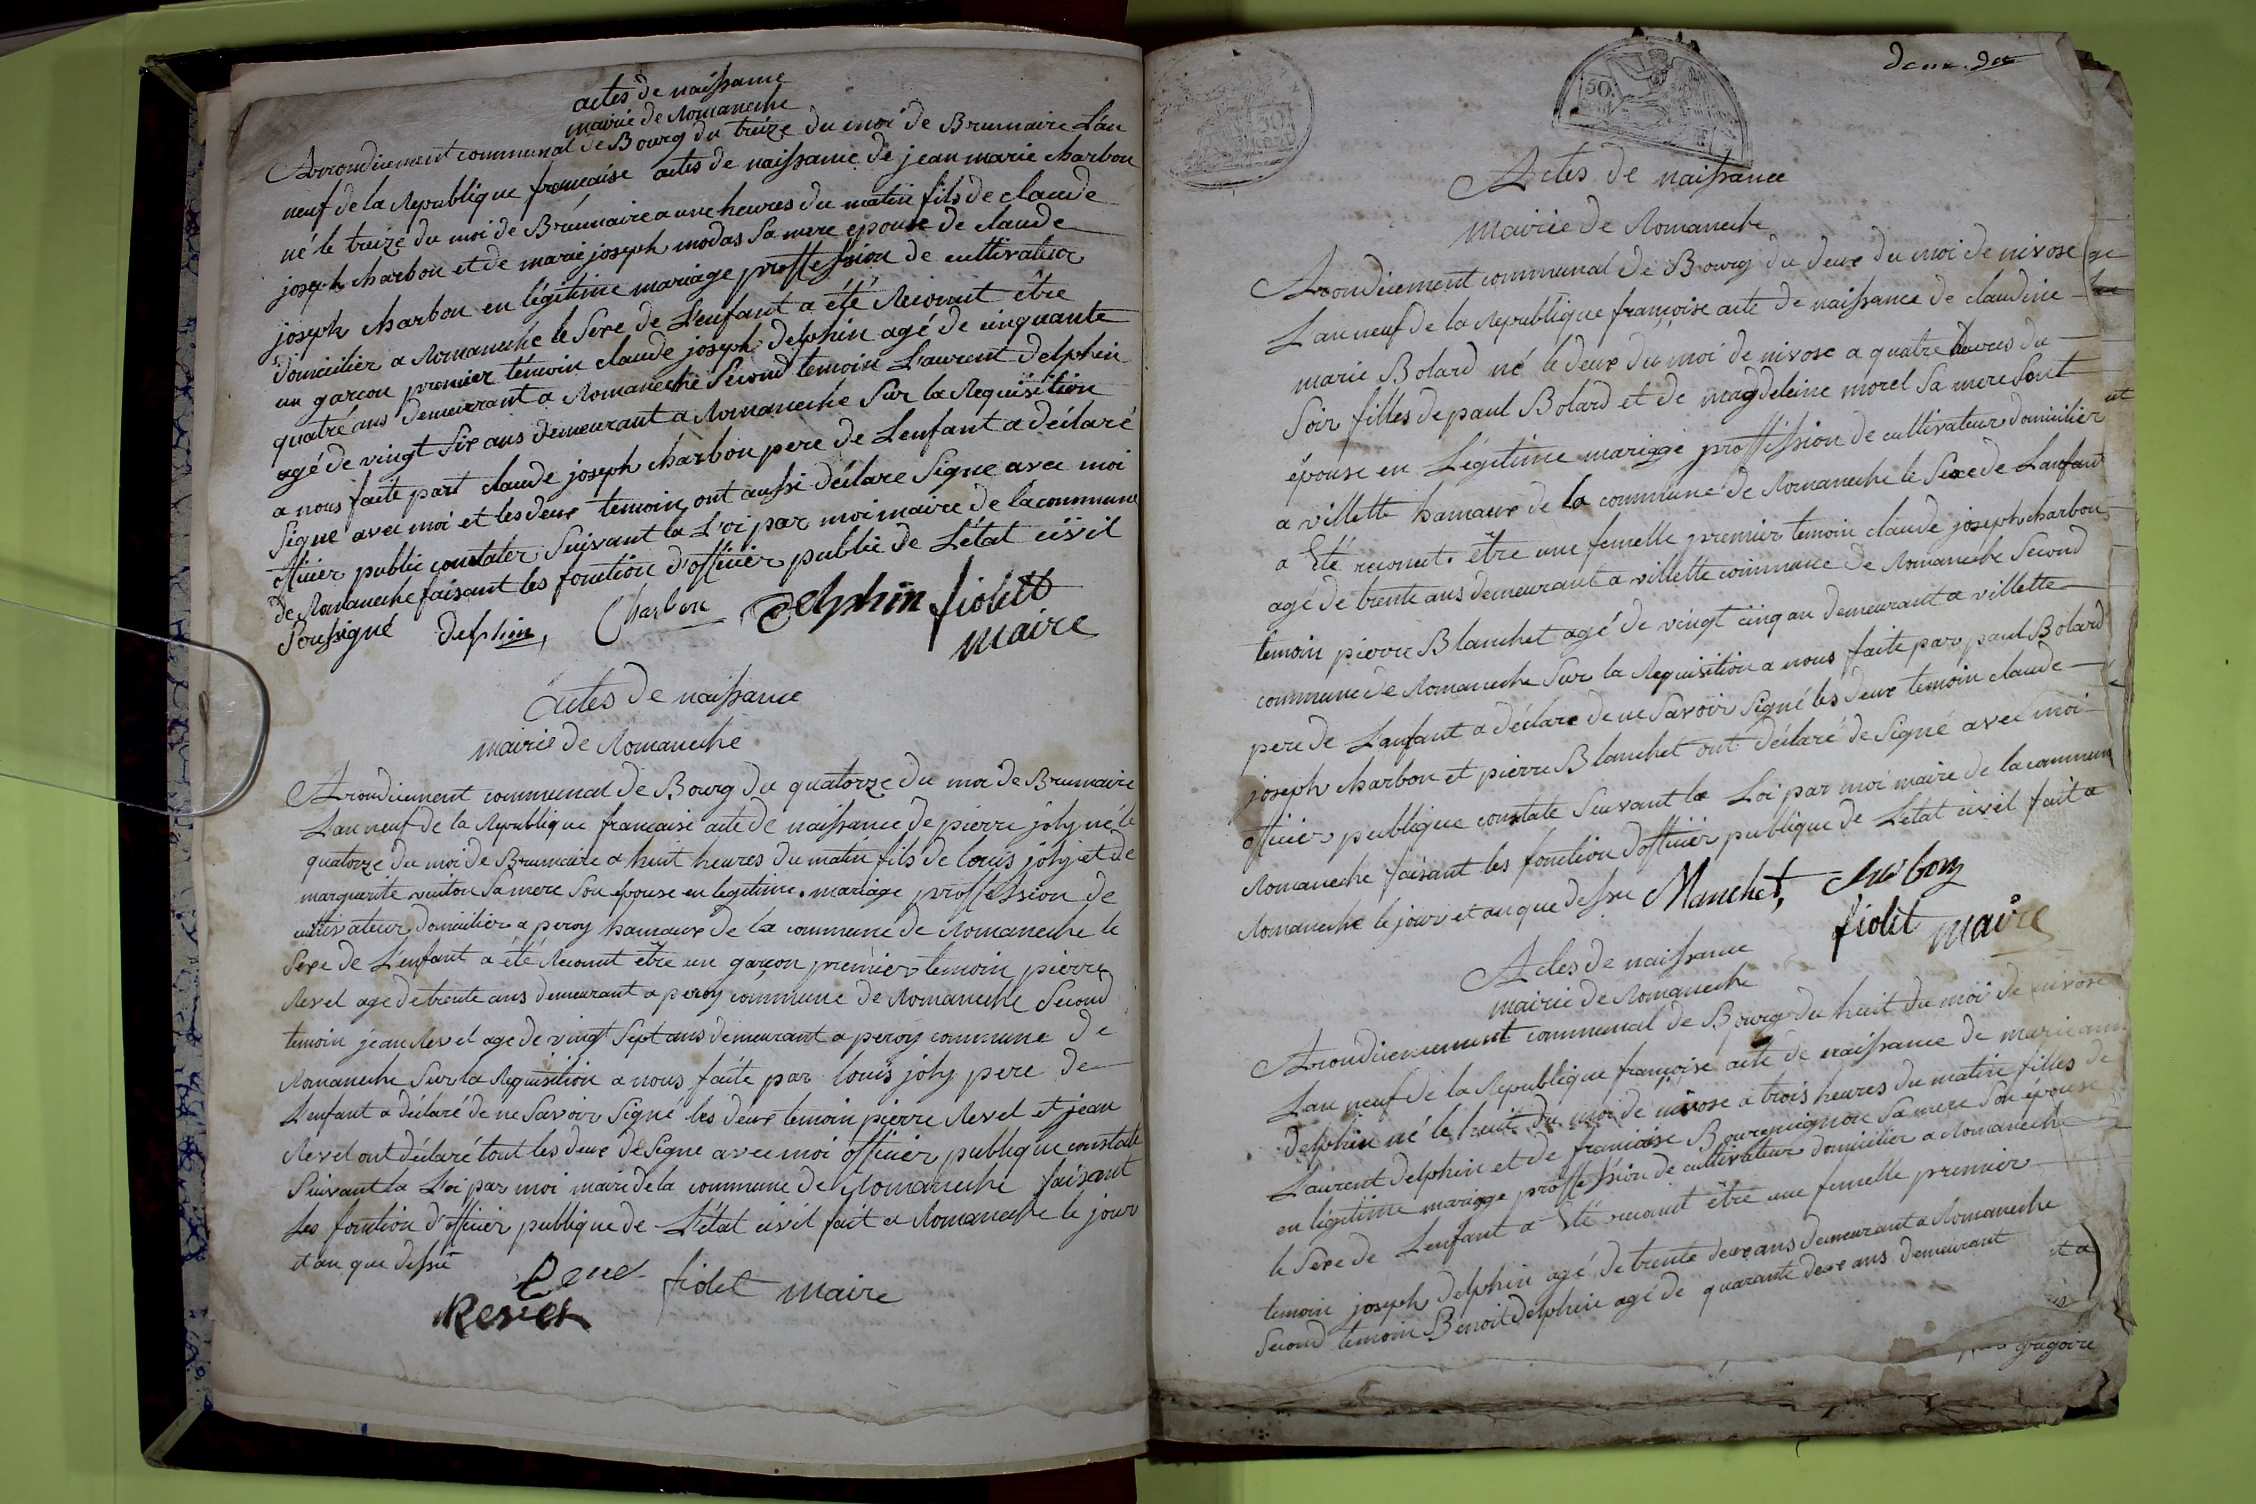 actes de naissance
mairie de Romaneche
Arrondicement communal de Bourg du treize du moi de Brumaire L'an
neuf de la Republique francaise actes de naissance de jean marie charbon
né le treize du moi de Brumaire a une heures du matin fils de claude
joseph charbon et de marie joseph modas Sa mere epouse de claude
joseph charbon en légitime mariage proffession de cultivateur
domicilier a Romaneche le Sexe de L'enfant a été Reconnut être
un garcon premier temoin claude joseph delphin agé de cinquante
quatre ans demeurant a Romaneche Second temoin Laurent delphin
agé de vingt Six ans demeurant a Romaneche Sur la Requisition
a nous faite part claude joseph charbon pere de Lenfant a déclaré
Signé avec moi et les deux temoin ont aussi déclare Signe avec moi
officier public constater Suivant la Loi par moi maire de la commune
de Romaneche faisant les fonction d'officier public de L'état civil
Soussigné delphin, Charbon delphin fiolet
maire
Actes de naissance
mairie de Romaneche
Arrondicement communal de Bourg du quatorze du moi de Brumaire
L'an neuf de la Republique francaise acte de naissance de pierre joly né le
quatorze du moi de Brumaire a huit heures du matin fils de louis joly et de
marguerite Sa mere Son épouse en legitime mariage proffession de
cultivateur domicilier a peroy hamaux de la commune de Romaneche le
Sexe de L'enfant a été Reconnut être un garcon premier temoin pierre
Revel age de trente ans demeurant a peroy commune de Romaneche Second
temoin jean Revel age de vingt Sept ans demeurant a peroy commune de
Romaneche Sur la Requisition a nous faite par louis joly pere de
L'enfant a déclaré de ne Savoir Signé les deux temoin pierre Revel et jean
Revel ont déclaré tout les deux de Signe avec moi officier publique constate
Suivant la Loi par moi maire de la commune de Romaneche faisant
les fonction d'officier publique de L'état civil fait a Romaneche le jour
et an que dessu
fiolet maire
Revel
Actes de naissance
mairie de Romaneche
Arrondicement communal de Bourg du deux du moi de nivose
L'an neuf de la Republique françoise acte de naissance de claudine
marie Bolard né le deux du moi de nivose a quatre heures du
Soir filles de paul Bolard et de magdeleine morel Sa mere Sont
épouse en Légitime mariage proffession de cultivateur domicilier
a villette hamaux de la commune de Romaneche le Sexe de Lanfant
a Eté reconnut être une femelle premier temoin claude joseph charbon
agé de trente ans demeurant a villette commune de Romaneche Second
temoin pierre Blanchet agé de vingt cinq an demeurant a villette
commune de Romaneche Sur la Requisition a nous faite par paul Bolard
pere de Lanfant a déclare de ne Savoir Signé les deux temoin claude
joseph charbon et pierre Blanchet ont déclaré de Signé avec moi
officier publique constate Suivant la Loi par moi maire de la commun
Romaneche faisant les fonction d'officier publique de L'etat civil fait a
Romaneche le jour et an que dessu Blanchet, Charbon
fiolet maire
Actes de naissance
mairie de Romaneche
Arrondicement communal de Bourg du huit du moi de nivose
L'an neuf de la Republique françoise acte de naissance de marie ann
delphin né le huit du moi de nivose a trois heures du matin filles de
Laurent delphin et de francoise Bourguignon Sa mere Son épouse
en légitime mariage proffession de cultivateur domicilier a Romaneche
le Sexe de Lenfant a Eté reconnut être une femelle premier
temoin joseph delphin agé de trente deux ans demeurant a Romaneche
Second temoin Benoit delphin age de quarante deux ans demeurant
gregoire